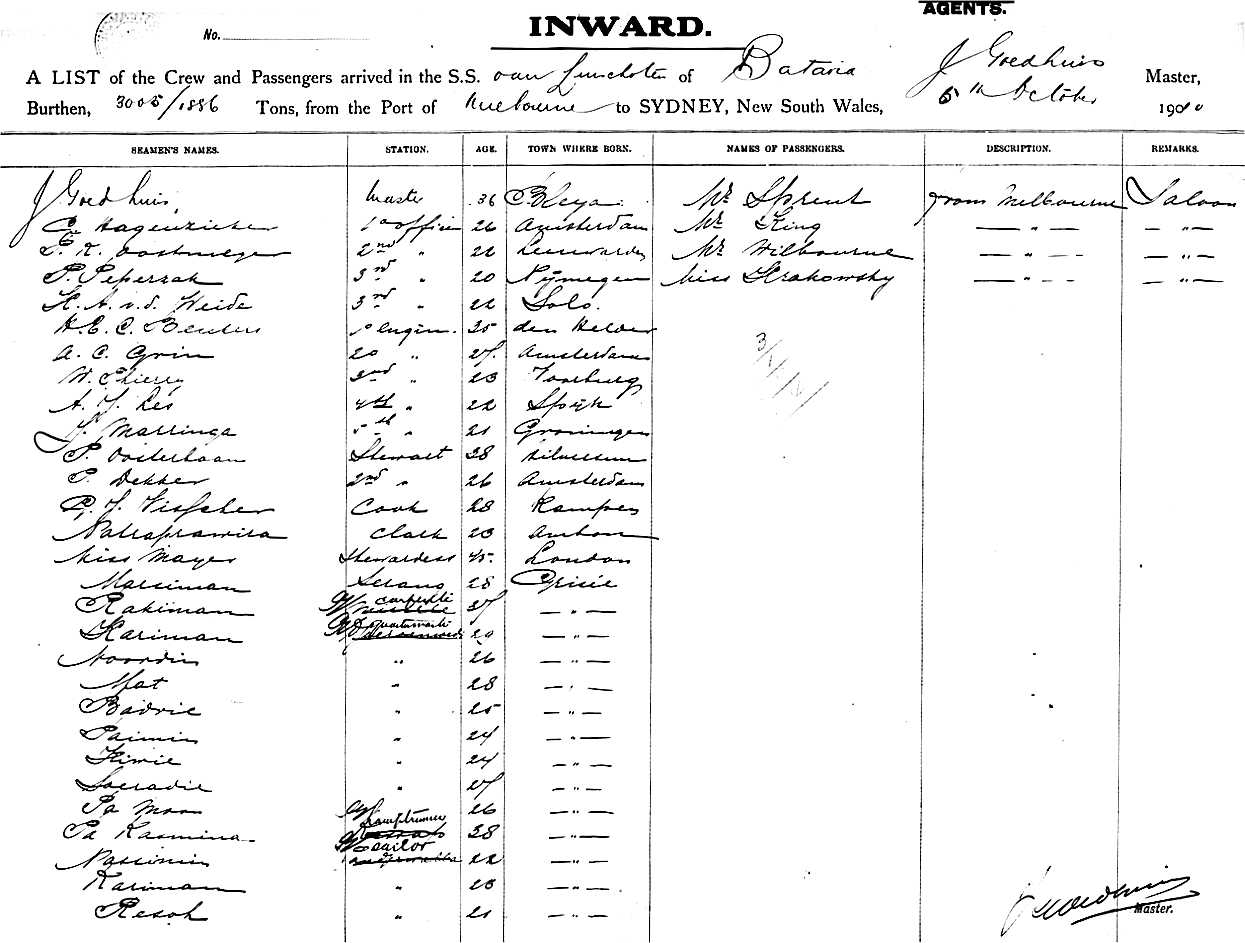 AGENTS.
No.
INWARD.
A LIST of the Crew and Passengers arrived in the S.S. van Linschoten of Batavia J Goedhuis Master,
Burthen, 3005/1886 Tons, from the Port of Melbourne to SYDNEY, New South Wales, 5th October 1900
SEAMEN'S NAMES. STATION. AGE. TOWN WHERE BORN. NAMES OF PASSENGERS. DESCRIPTION. REMARKS.
J Goedhuis Master 36 Mr Sprent from Melbourne Saloon
C. Hagenzieker 1e officier 26 Amsterdam Mr King — " — — " —
L. K. Oostmeyer 2nd " 22 Leeuwarden Mr Wilbourne — " — — " —
P. Peperzak 3rd " 20 Nymegen Miss Krakowsky — " — — " —
H. A. v. d. Weide 3rd " 22 Solo.
H. E. C. Beuters 1e engin. 25 den Helder
A. C. Grin 20 " 27. Amsterdam
W. Thierry 3rd " 23 Voorburg
A. J. Les 4th " 22 Spijk
J. Marringa 5th " 21 Groningen
P. Oosterbaan Stewart 38 Hilversum
P. Dekker 2nd " 26 Amsterdam
C. J. Visscher Cook 28 Kampen
Natraprawira Clark 23 Ambon
Miss Mayer Stewardess 45. London
Marsiman Serang 28 Grisie
Rakiman 27 — " —
Kariman 20 — " —
Noordin " 26 — " —
Mat " 28 — " —
Badrie " 25 — " —
Paimin " 24 — " —
Kimie " 24 — " —
Soeradie " 27 — " —
Pa Moen 26 — " —
Pa Kasmina 38 — " —
Nassimin sailor 22 — " —
Kariman " 23 — " —
Resoh " 21
J Goedhuis
Master.